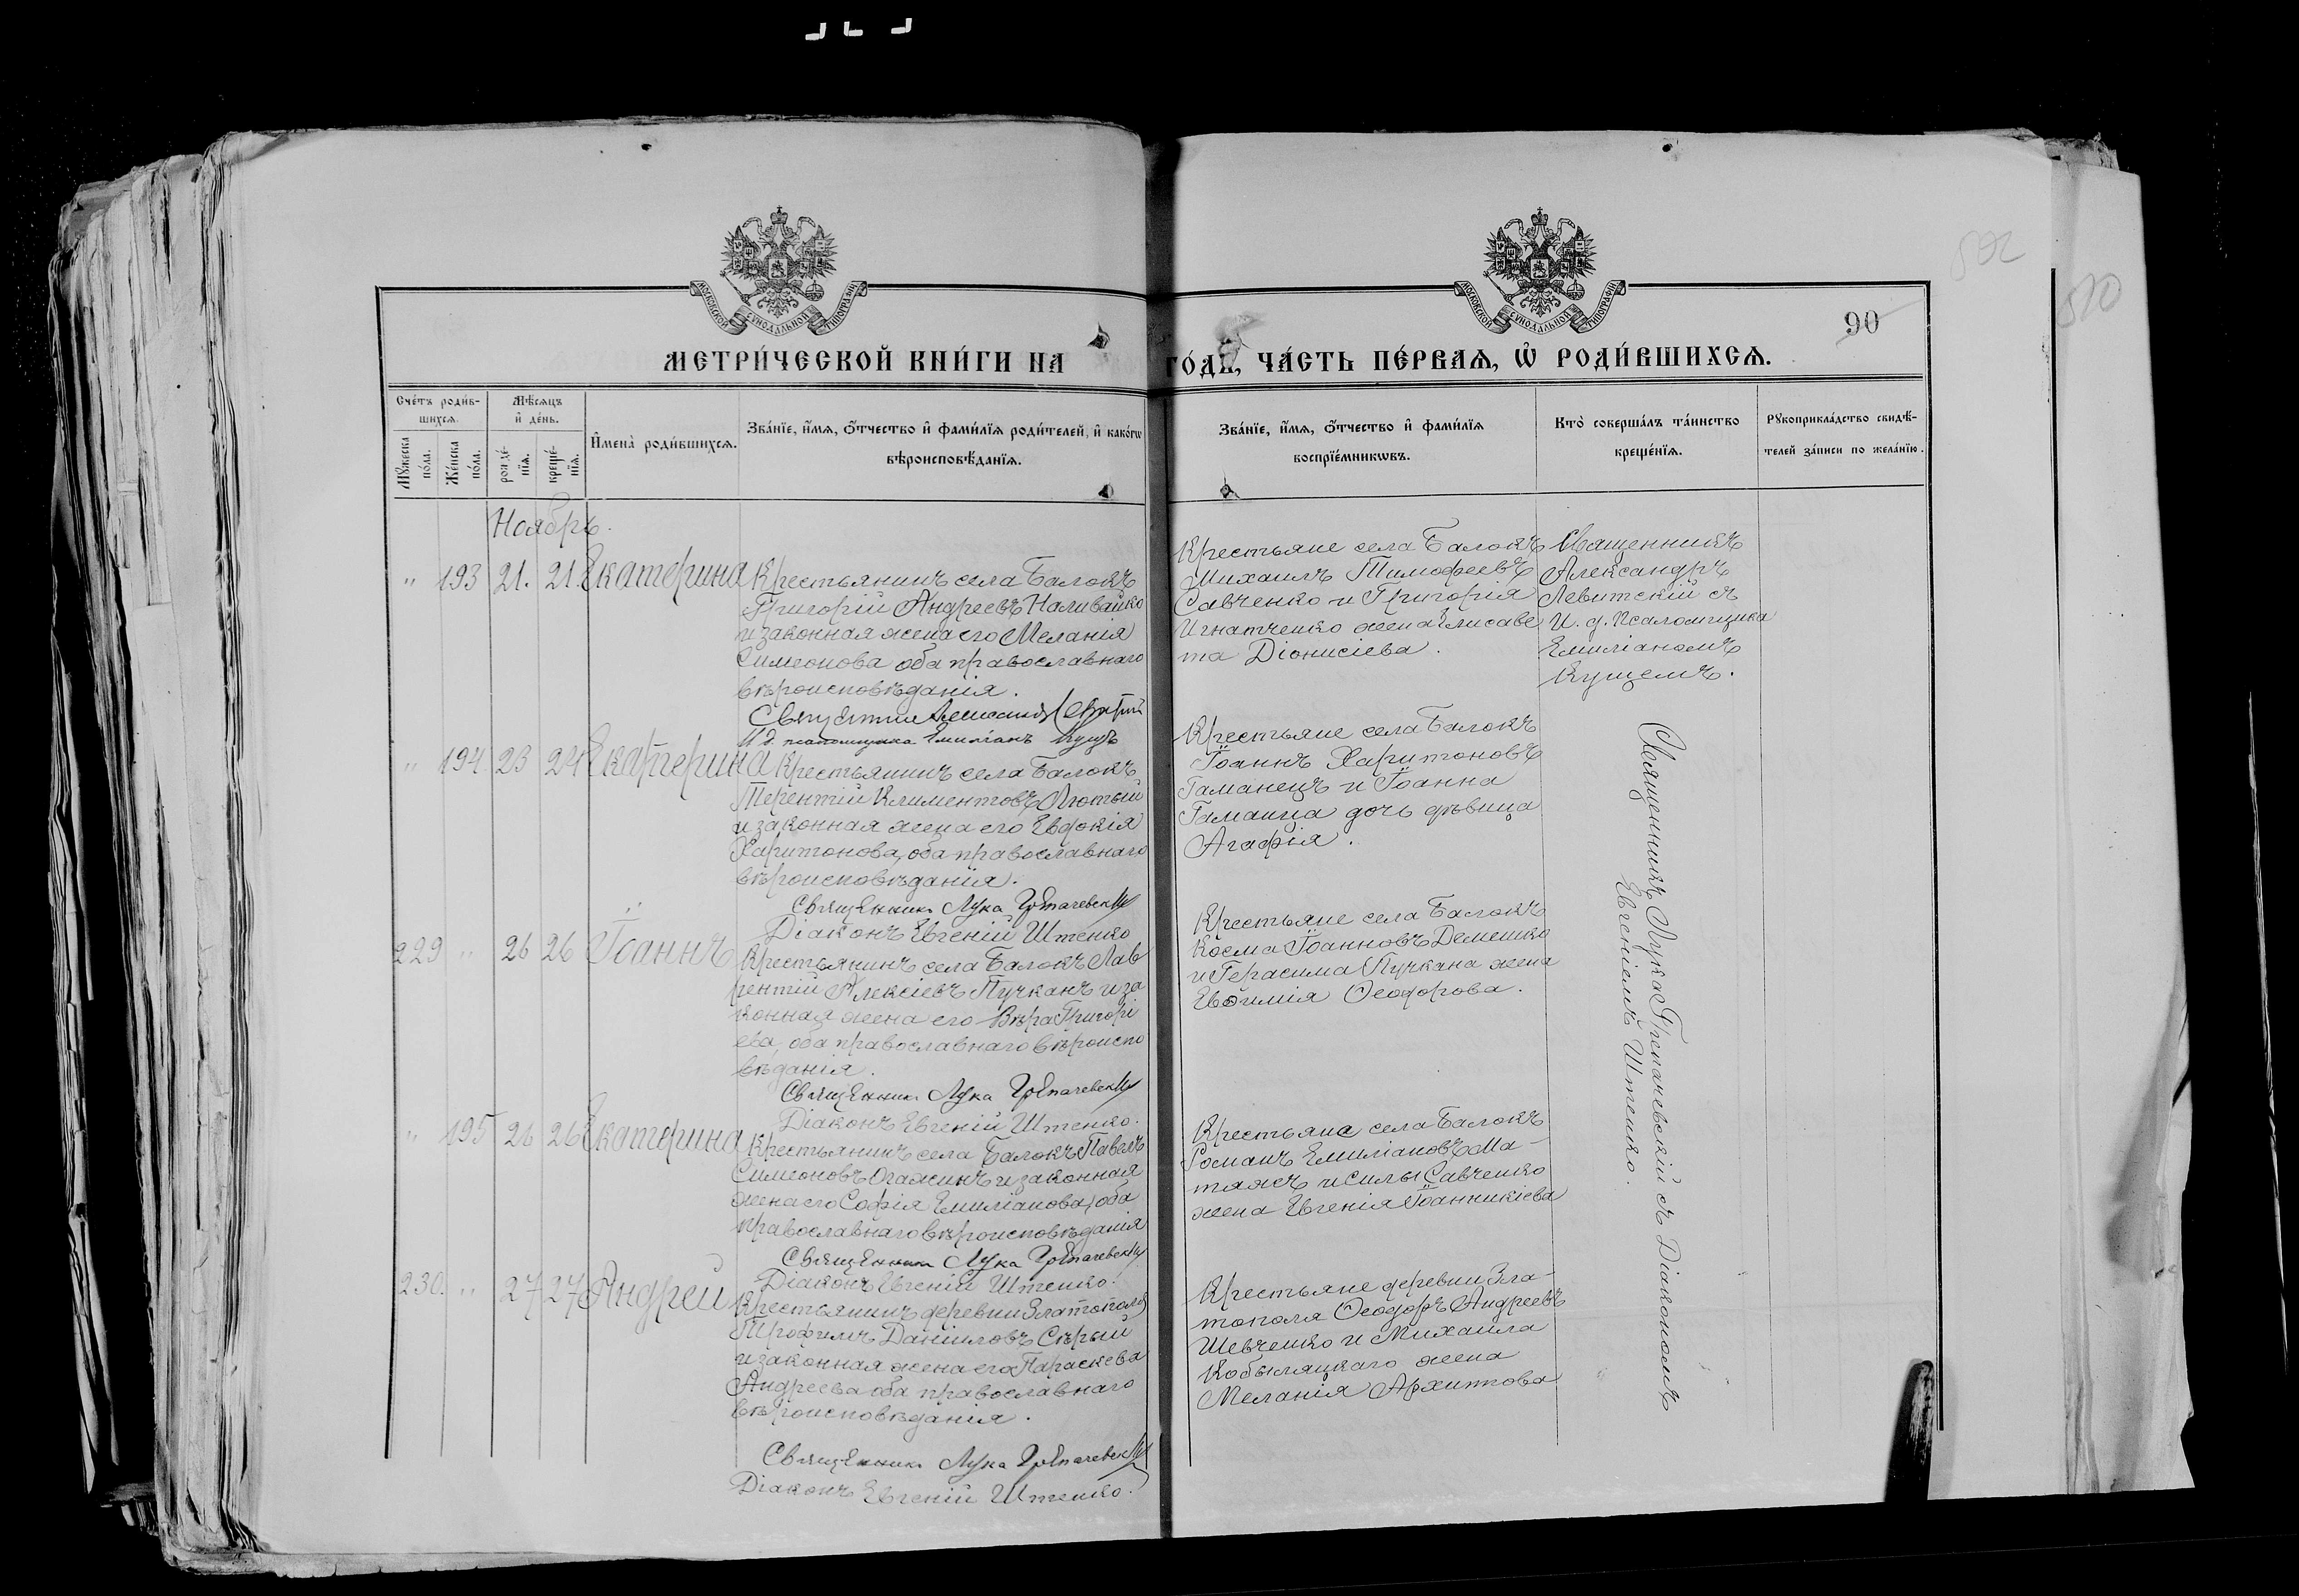 МОСКОВСКОЙ СѴНОДАЛЬНОЙ ТИПОГРАФІИ
МОСКОВСКОЙ СѴНОДАЛЬНОЙ ТИПОГРАФІИ
90
МЕТРИ́ЧЕСКОЙ КНИ́ГИ НА ГО́ДЪ, ЧА́СТЬ ПЕ́РВАЯ, Ѡ РОДИ́ВШИХСЯ.
Сче́тъ роди́в-
шихся.
Мѣ́сяцъ
и́ де́нь.
Мꙋ́жеска
по́ла.
Же́нска
по́ла.
рожде́-
нїя.
креще́-
нїя.
И҆мена̀ роди́вшихся.
Зва́нїе, и҆́мя, ѻ҆́тчество и҆ фами́лїя роди́телей, и҆ како́гѡ
вѣроисповѣ́данїя.
Зва́нїе, и҆́мя, ѻ҆́тчество и҆ фами́лїя
воспрїе́мникѡвъ.
Кто̀ соверша́лъ та́инство
креще́нїя.
Рꙋкоприкла́дство свидѣ́-
телей за́писи по жела́нїю.
Ноябрь.
" 193 21. 21. Екатерина
Крестьянинъ села Балокъ
Григорій Андреевъ Наливайко
и законная жена его Меланія
Симеонова оба православнаго
вѣроисповѣданія.
Священникъ Александръ Левитскій
И. д. псаломщика Емиліанъ Кущъ
Крестьяне села Балокъ
Михаилъ Тимофеевъ
Савченко и Григорія
Игнатченко жена Елисаве
та Діонисіева.
Священникъ
Александръ
Левитскій съ
И. д. Псаломщика
Емиліаномъ
Кущемъ.
" 194. 23 24 Екатерина
Крестьянинъ села Балокъ
Терентій Климентовъ Лютый
и законная жена его Евдокія
Харитонова, оба православнаго
вѣроисповѣданія.
Священникъ Лука Грепачевскій
Діаконъ Евгеній Штепко
Крестьяне села Балокъ
Іоаннъ Харитоновъ
Гаманецъ и Іоанна
Гаманца дочь дѣвица
Агафія.
Священникъ Лука Грепачевскій съ Діакономъ
Евгеніемъ Штепко.
229 " 26 26 Іоаннъ
Крестьянинъ села Балокъ Лав
рентій Алексіевъ Пучканъ и за
конная жена его Вѣра Григорі
ева, оба православнаго вѣроиспо
вѣданія.
Священникъ Лука Грепачевскій
Діаконъ Евгеній Штепко.
Крестьяне села Балокъ
Косма Іоанновъ Демешко
и Герасима Пучкана жена
Евѳимія Ѳеодорова.
" 195 26 26 Екатерина
Крестьянинъ села Балокъ Павелъ
Симеоновъ и законная
жена его Софія Емиліанова, оба
православнаго вѣроисповѣданія
Священникъ Лука Грепачевскій
Діаконъ Евгеній Штепко.
Крестьяне села Балокъ
Романъ Емиліановъ Ма-
тяжъ и Силы Савченко
жена Евгенія Іоанникіева
230. " 27 27 Андрей
Крестьянинъ деревни Златополя
Трофимъ Даніиловъ Сѣрый
и законная жена его Параскева
Андреева оба православнаго
вѣроисповѣданія.
Священникъ Лука Грепачевскій
Діаконъ Евгеній Штепко.
Крестьяне деревни Зла-
тополя Ѳеодоръ Андреевъ
Шевченко и Михаила
Кобыляцкаго жена
Меланія Архиппова